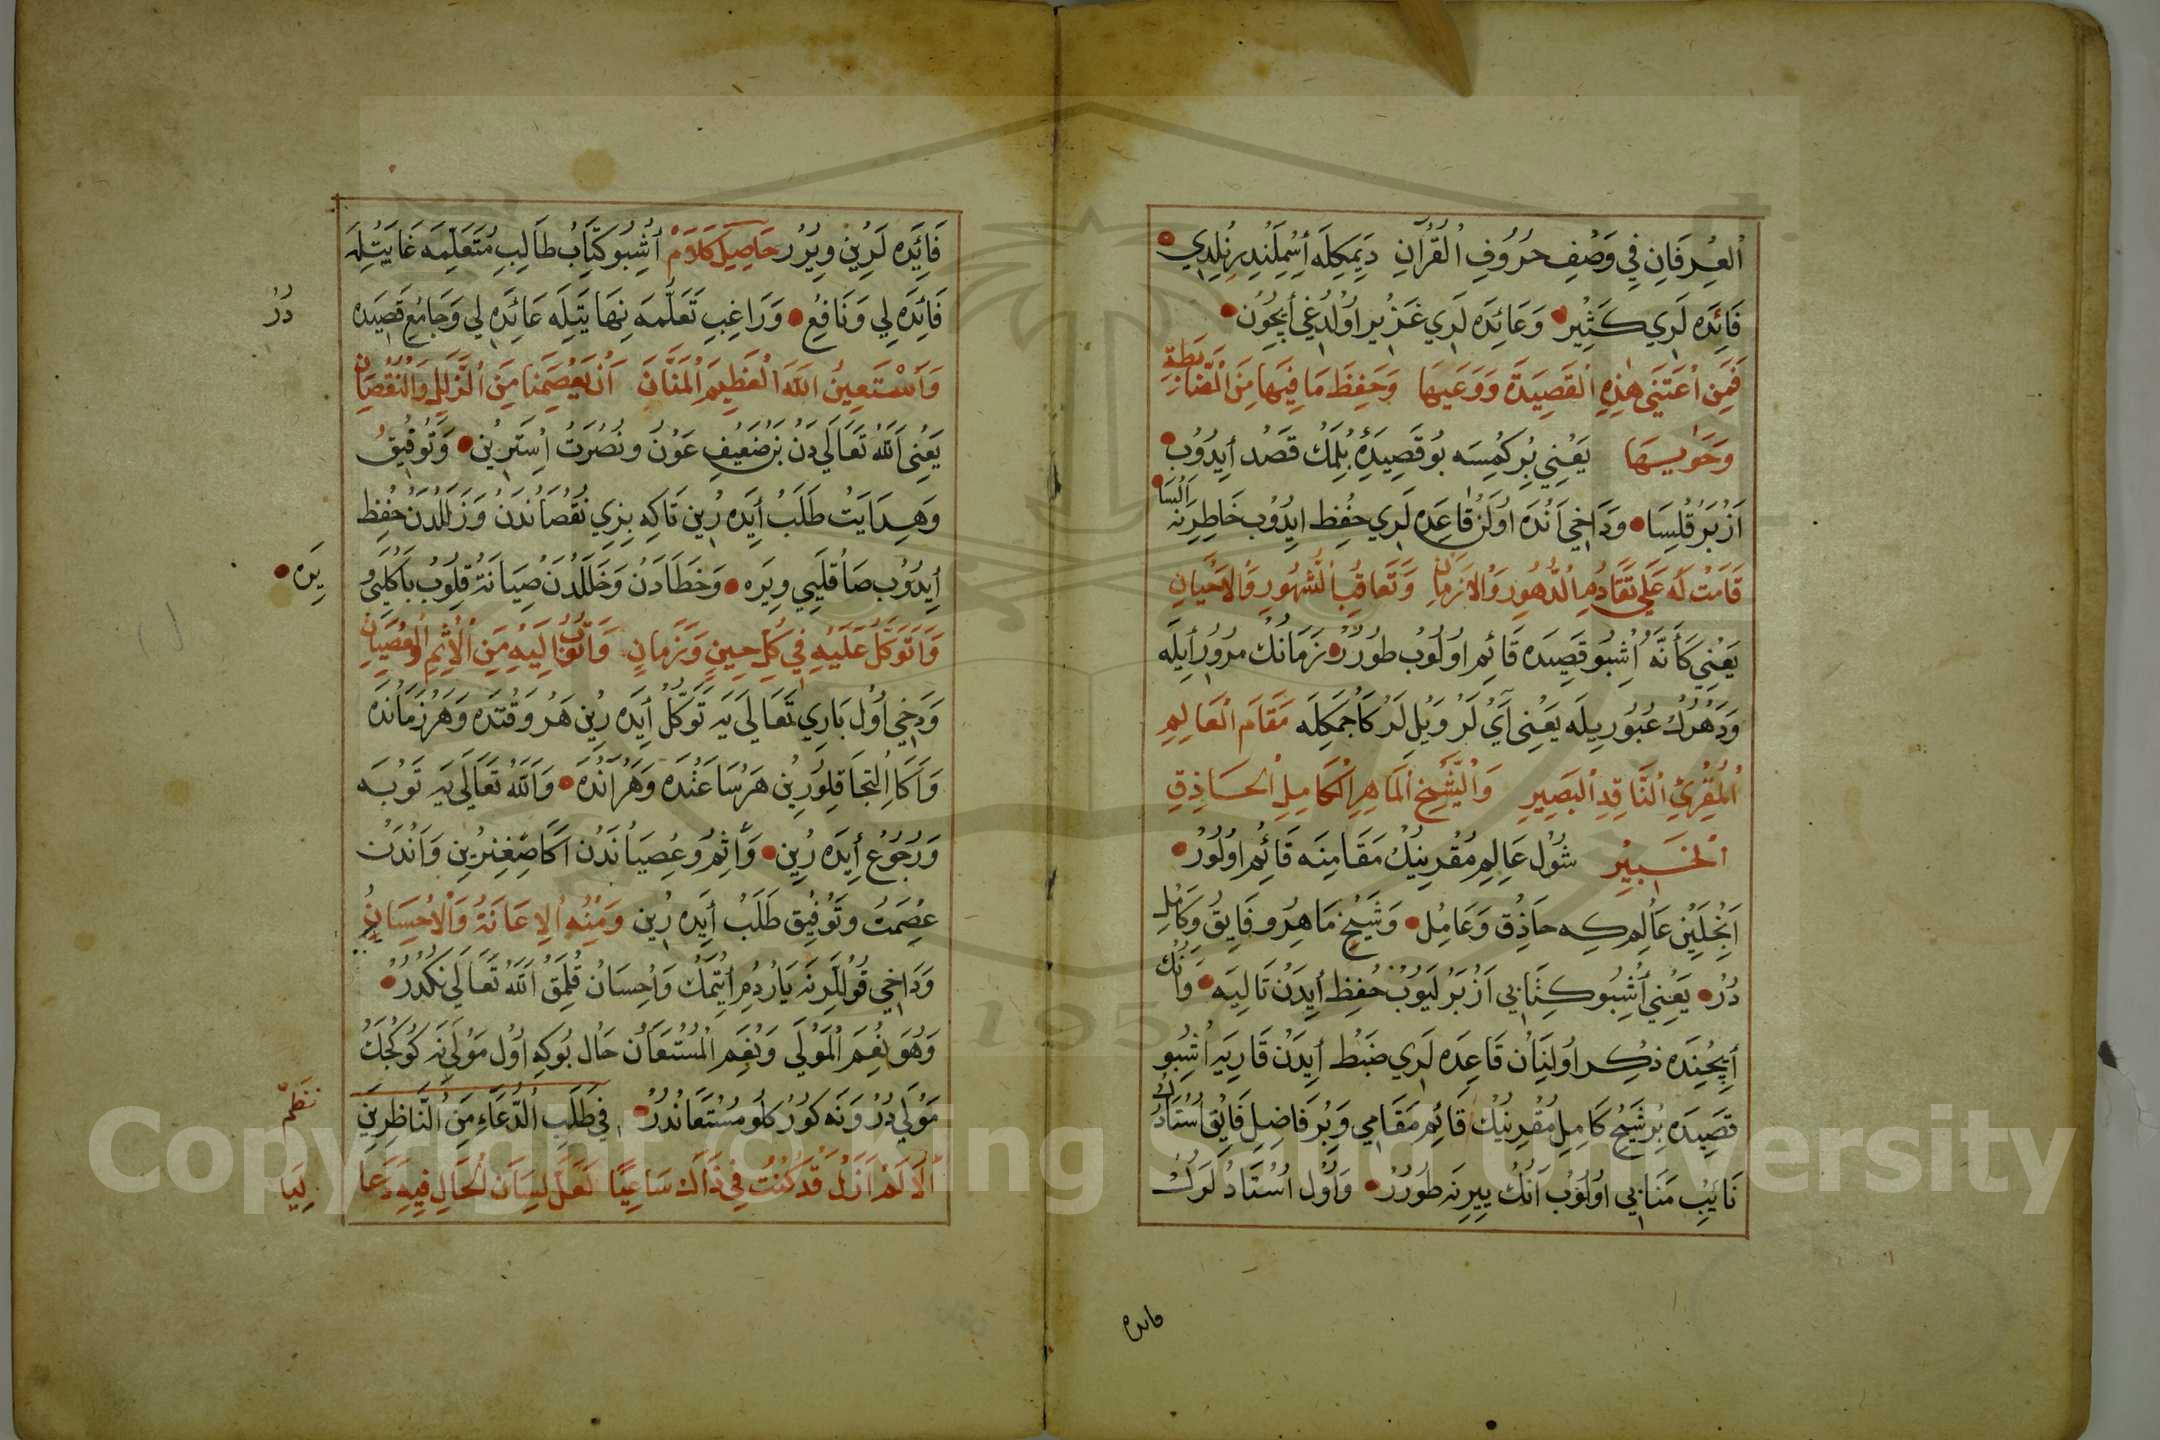 اَلْعِرْفَانِ فِي وَصْفِ حُرُوفِ الْقُرْآنِ دَيِمَكِلَه أَسْمِلَنْدِيرِلْدِي
فَائِدَه لَرِي كَثِيرْ وَعَائِدَه لَرِي غَزِيرْ اُولْدُغِي أَجِيُونْ
فَمَنِ اعْتَنَى هٰذِهِ الْقَصِيدَةَ وَوَعَيهَا وَحَفِظَ مَا فِيهَا مِنَ الضَّابِطَةِ
وَحَوٰيهَا يَعْنِي بِرْ كِمْسَه بُو قَصِيدَةُ بِلْمَكْ قَصْدْ أَيدُوبْ
اَزْبَرْ قِلْسَا وَدَاخِي اَنْدَه اُولَنْ قَاعِدَه لَرِي حِفْظْ اِيدُوبْ خَاطِرِنَه اَلْسَا
قَامَتْ لَه عَلَى تَقَادُمِ الدُّهُورِ وَالْاَزْمَانِ وَتَعَاقُبِ الشُّهُورِ وَالْاَحْيَانِ
يَعْنِي كَأَنَّه أُشْبُو قَصِيدَه قَائِمْ اُولُوبْ طُورُرْ زَمَانُكْ مُرُورْ أَيلَه
وَدَهْرُكْ عُبُورِيلَه يَعْنِي آيْ لَرْ وَيِلْ لَرْ كَاجْمَكِلَه مَقَامَ الْعَالِمِ
الْمُقْرِئِ النَّاقِدِ الْبَصِيرِ وَالشَّيْخِ الْمَاهِرِ الْكَامِلِ الْحَاذِقِ
الْخَبِيْرِ شُولْ عَالِمْ مُقْرِينِكْ مَقَامِنَه قَائِمْ اُولُورْ
اَنْجِلَيِنْ عَالِمْ كِه حَاذِقْ وَعَامِلْ وَشَيْخِ مَاهِرْ وَفَايِقْ وَكَامِلْ
دُرْ يَعْنِي أُشْبُو كِتَابِي اَزْبَرْ لَيُوبْ حِفْظْ أَيدَنْ تَالِيَه وَاَنُكْ
أَيجِنْدَه ذِكْرْ اُولِنَانْ قَاعِدَه لَرِي ضَبْطْ أَيدَنْ قَارِيَه أُشْبُو
قَصِيدَه بِرْ شَيْخِ كَامِلْ مُقْرِينِكْ قَائِمْ مَقَامِي وَبِرْ فَاضِلِ فَايِقْ اُسْتَادُكْ
نَائِبِ مَنَابِي اُولُوبْ اَنُكْ يِيرِنَه طُورُرْ وَاُولْ اُسْتَادْ لَرُكْ
فائده
فَائِدَه لَرِين وِيرُرْ حَاصِلِ كَلَامْ أُشْبُو كِتَابْ طَالِبِ مُتَعَلِّمَه غَايَتْلَه
فَائِدَه لِي وَنَافِعْ وَرَاغِبِ تَعَلُّمَه نِهَايَتِلَه عَائِدَه لِي وَجَامِعْ قَصِيدَه
دُرْ
وَاَسْتَعِينُ اللّٰهَ الْعَظِيمَ الْمَنَّانَ اَنْ يَعْصِمَنَا مِنَ الزَّلَلِ وَالنُّقْصَانِ
يَعْنِي اَللّٰه تَعَالَى دَنْ بَنْ ضَعِيفِ عَوْنْ وَنُصْرَتْ اِسْتَرِينْ وَتَوْفِيقْ
وَهِدَايَتْ طَلَبْ أَيدَه رِينْ تَاكِه بِزِي نُقْصَانْدَنْ وَزَلَلْدَنْ حِفْظْ
أَيدُوبْ صَاقْلَيِي وِيرَه وَخَطَادَنْ وَخَلَلْدَنْ صِيَانَةْ قِلُوبْ بَاكْلَيِي
يَرَه
وَاَتَوَكَّلُ عَلَيْهِ فِي كُلِّ حِينٍ وَزَمَانٍ وَاَتُوبُ اِلَيْهِ مِنَ الْاِثْمِ وَالْعِصْيَانِ
وَدَخِي اُولْ بَارِي تَعَالَى يَه تَوَكُّلْ أَيدَه رِينْ هَرْ وَقْتَدَه وَهَرْ زَمَانْدَه
وَاَكَا اِلْتِجَا قِلُورِينْ هَرْ سَاعَتْدَه وَهَرْ آنْدَه وَاَللّٰه تَعَالَى يَه تَوْبَه
وَرُجُوعْ أَيدَه رِينْ وَاِثْمْ وَعِصْيَانْدَنْ اَكَا صِغِنِرِينْ وَاَنْدَنْ
عِصْمَتْ وَتَوْفِيقْ طَلَبْ أَيدَه رِينْ وَمِنْهُ الْاِعَانَةُ وَالْاِحْسَانُ
وَدَاخِي قُولْلَرِنَه يَارْدُمْ أَيتْمَكْ وَاِحْسَانْ قِلْمَقْ اَللّٰه تَعَالَى نِكْدُرْ
وَهُوَ نِعْمَ الْمَوْلَى وَنِعْمَ الْمُسْتَعَانْ حَالْ بُوكِه اُولْ مَوْلَى نَه كُوكْجَكْ
مَوْلَى دُرْ وَنَه كُورْكَلُو مُسْتَعَانْدُرْ فِي طَلَبِ الدُّعَاءِ مِنَ النَّاظِرِينَ
نَظْمْ
اَلَا لَمْ اَزَلْ قَدْ كُنْتُ فِي ذَاكَ سَاعِيًا لَعَلَّ لِسَانَ الْحَالِ فِيهِ دَعَا
لِيَا
Copyright © King Saud University
1957